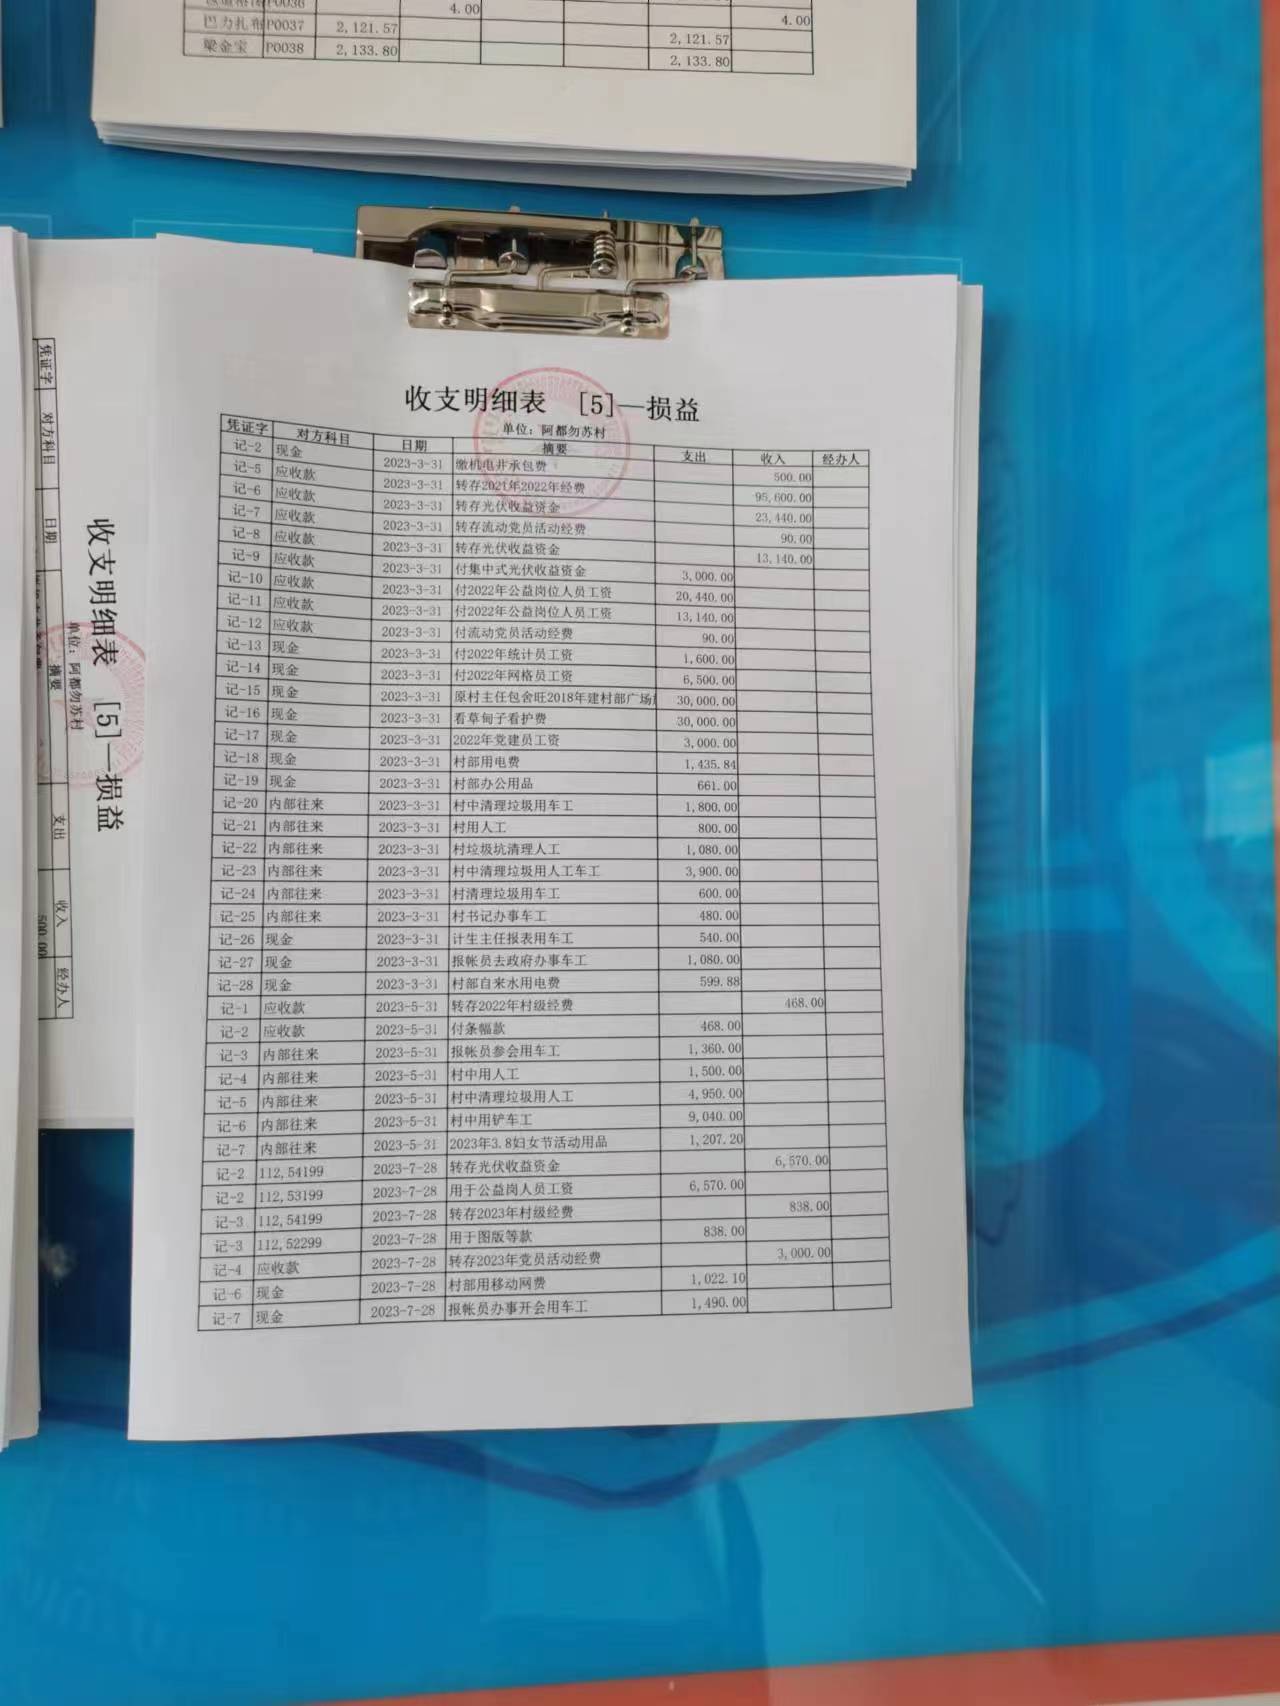 P0036 4.00 4.00
巴力扎布 P0037 2,121.57 2,121.57
梁金宝 P0038 2,133.80 2,133.80
收支明细表 [5]—损益
单位：阿都勿苏村
凭证字 对方科目 日期 摘要 支出 收入 经办人
500.00
收支明细表 [5]—损益
单位：阿都勿苏村
凭证字 对方科目 日期 摘要 支出 收入 经办人
记-2 现金 2023-3-31 缴机电井承包费 500.00
记-5 应收款 2023-3-31 转存2021年2022年经费 95,600.00
记-6 应收款 2023-3-31 转存光伏收益资金 23,440.00
记-7 应收款 2023-3-31 转存流动党员活动经费 90.00
记-8 应收款 2023-3-31 转存光伏收益资金 13,140.00
记-9 应收款 2023-3-31 付集中式光伏收益资金 3,000.00
记-10 应收款 2023-3-31 付2022年公益岗位人员工资 20,440.00
记-11 应收款 2023-3-31 付2022年公益岗位人员工资 13,140.00
记-12 应收款 2023-3-31 付流动党员活动经费 90.00
记-13 现金 2023-3-31 付2022年统计员工资 1,600.00
记-14 现金 2023-3-31 付2022年网格员工资 6,500.00
记-15 现金 2023-3-31 原村主任包舍旺2018年建村部广场 30,000.00
记-16 现金 2023-3-31 看草甸子看护费 30,000.00
记-17 现金 2023-3-31 2022年党建员工资 3,000.00
记-18 现金 2023-3-31 村部用电费 1,435.84
记-19 现金 2023-3-31 村部办公用品 661.00
记-20 内部往来 2023-3-31 村中清理垃圾用车工 1,800.00
记-21 内部往来 2023-3-31 村用人工 800.00
记-22 内部往来 2023-3-31 村垃圾坑清理人工 1,080.00
记-23 内部往来 2023-3-31 村中清理垃圾用人工车工 3,900.00
记-24 内部往来 2023-3-31 村清理垃圾用车工 600.00
记-25 内部往来 2023-3-31 村书记办事车工 480.00
记-26 现金 2023-3-31 计生主任报表用车工 540.00
记-27 现金 2023-3-31 报帐员去政府办事车工 1,080.00
记-28 现金 2023-3-31 村部自来水用电费 599.88
记-1 应收款 2023-5-31 转存2022年村级经费 468.00
记-2 应收款 2023-5-31 付条幅款 468.00
记-3 内部往来 2023-5-31 报帐员参会用车工 1,360.00
记-4 内部往来 2023-5-31 村中用人工 1,500.00
记-5 内部往来 2023-5-31 村中清理垃圾用人工 4,950.00
记-6 内部往来 2023-5-31 村中用铲车工 9,040.00
记-7 内部往来 2023-5-31 2023年3.8妇女节活动用品 1,207.20
记-2 112,54199 2023-7-28 转存光伏收益资金 6,570.00
记-2 112,53199 2023-7-28 用于公益岗人员工资 6,570.00
记-3 112,54199 2023-7-28 转存2023年村级经费 838.00
记-3 112,52299 2023-7-28 用于图版等款 838.00
记-4 应收款 2023-7-28 转存2023年党员活动经费 3,000.00
记-6 现金 2023-7-28 村部用移动网费 1,022.10
记-7 现金 2023-7-28 报帐员办事开会用车工 1,490.00